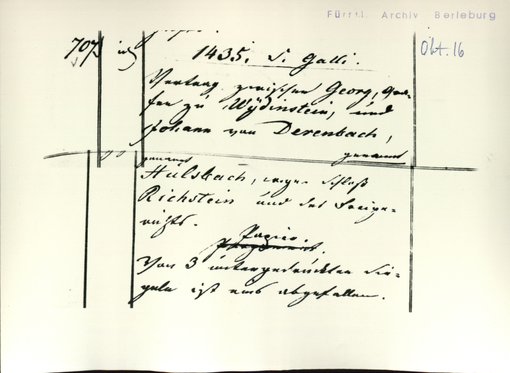 Fürstl. Archiv Berleburg
707
Okt. 16
1435. S. Galli.
Vertrag zwischen Georg, Gra-
fen zu Wydinstein, und
Johann von Derenbach,
genannt
genannt
Hulsbach, wegen Schloß
Richstein und des Freige-
richts.
Papier.
Pergament.
Von 3 untergedrückten Sie-
geln ist eins abgefallen.